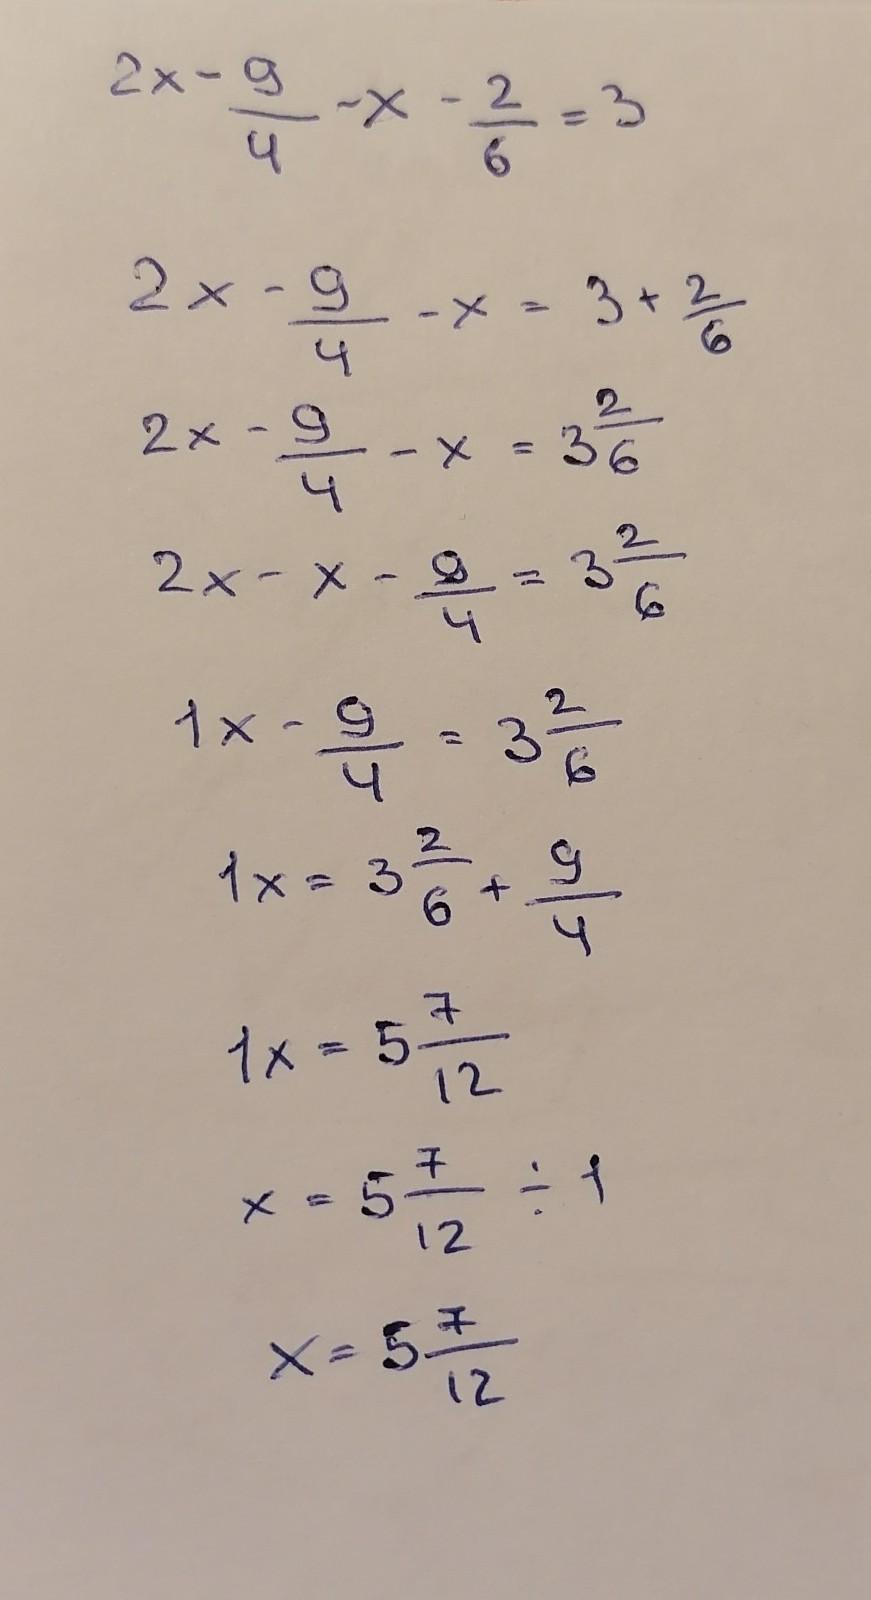 2x - 9/4 - x - 2/6 = 3
2x - 9/4 - x = 3 + 2/6
2x - 9/4 - x = 3 2/6
2x - x - 9/4 = 3 2/6
1x - 9/4 = 3 2/6
1x = 3 2/6 + 9/4
1x = 5 7/12
x = 5 7/12 ÷ 1
x = 5 7/12